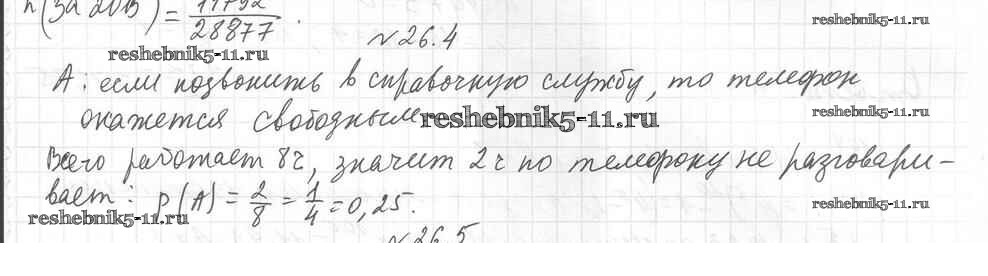 (За 2013) = 11792/28877.
reshebnik5-11.ru
reshebnik5-11.ru
№26.4
А: если позвонить в справочную службу, то телефон
окажется свободным reshebnik5-11.ru
reshebnik5-11.ru
Всего работает 8ч, значит 2ч по телефону не разговари-
вает: P(A) = 2/8 = 1/4 = 0,25.
reshebnik5-11.ru
reshebnik5-11.ru
№26.5